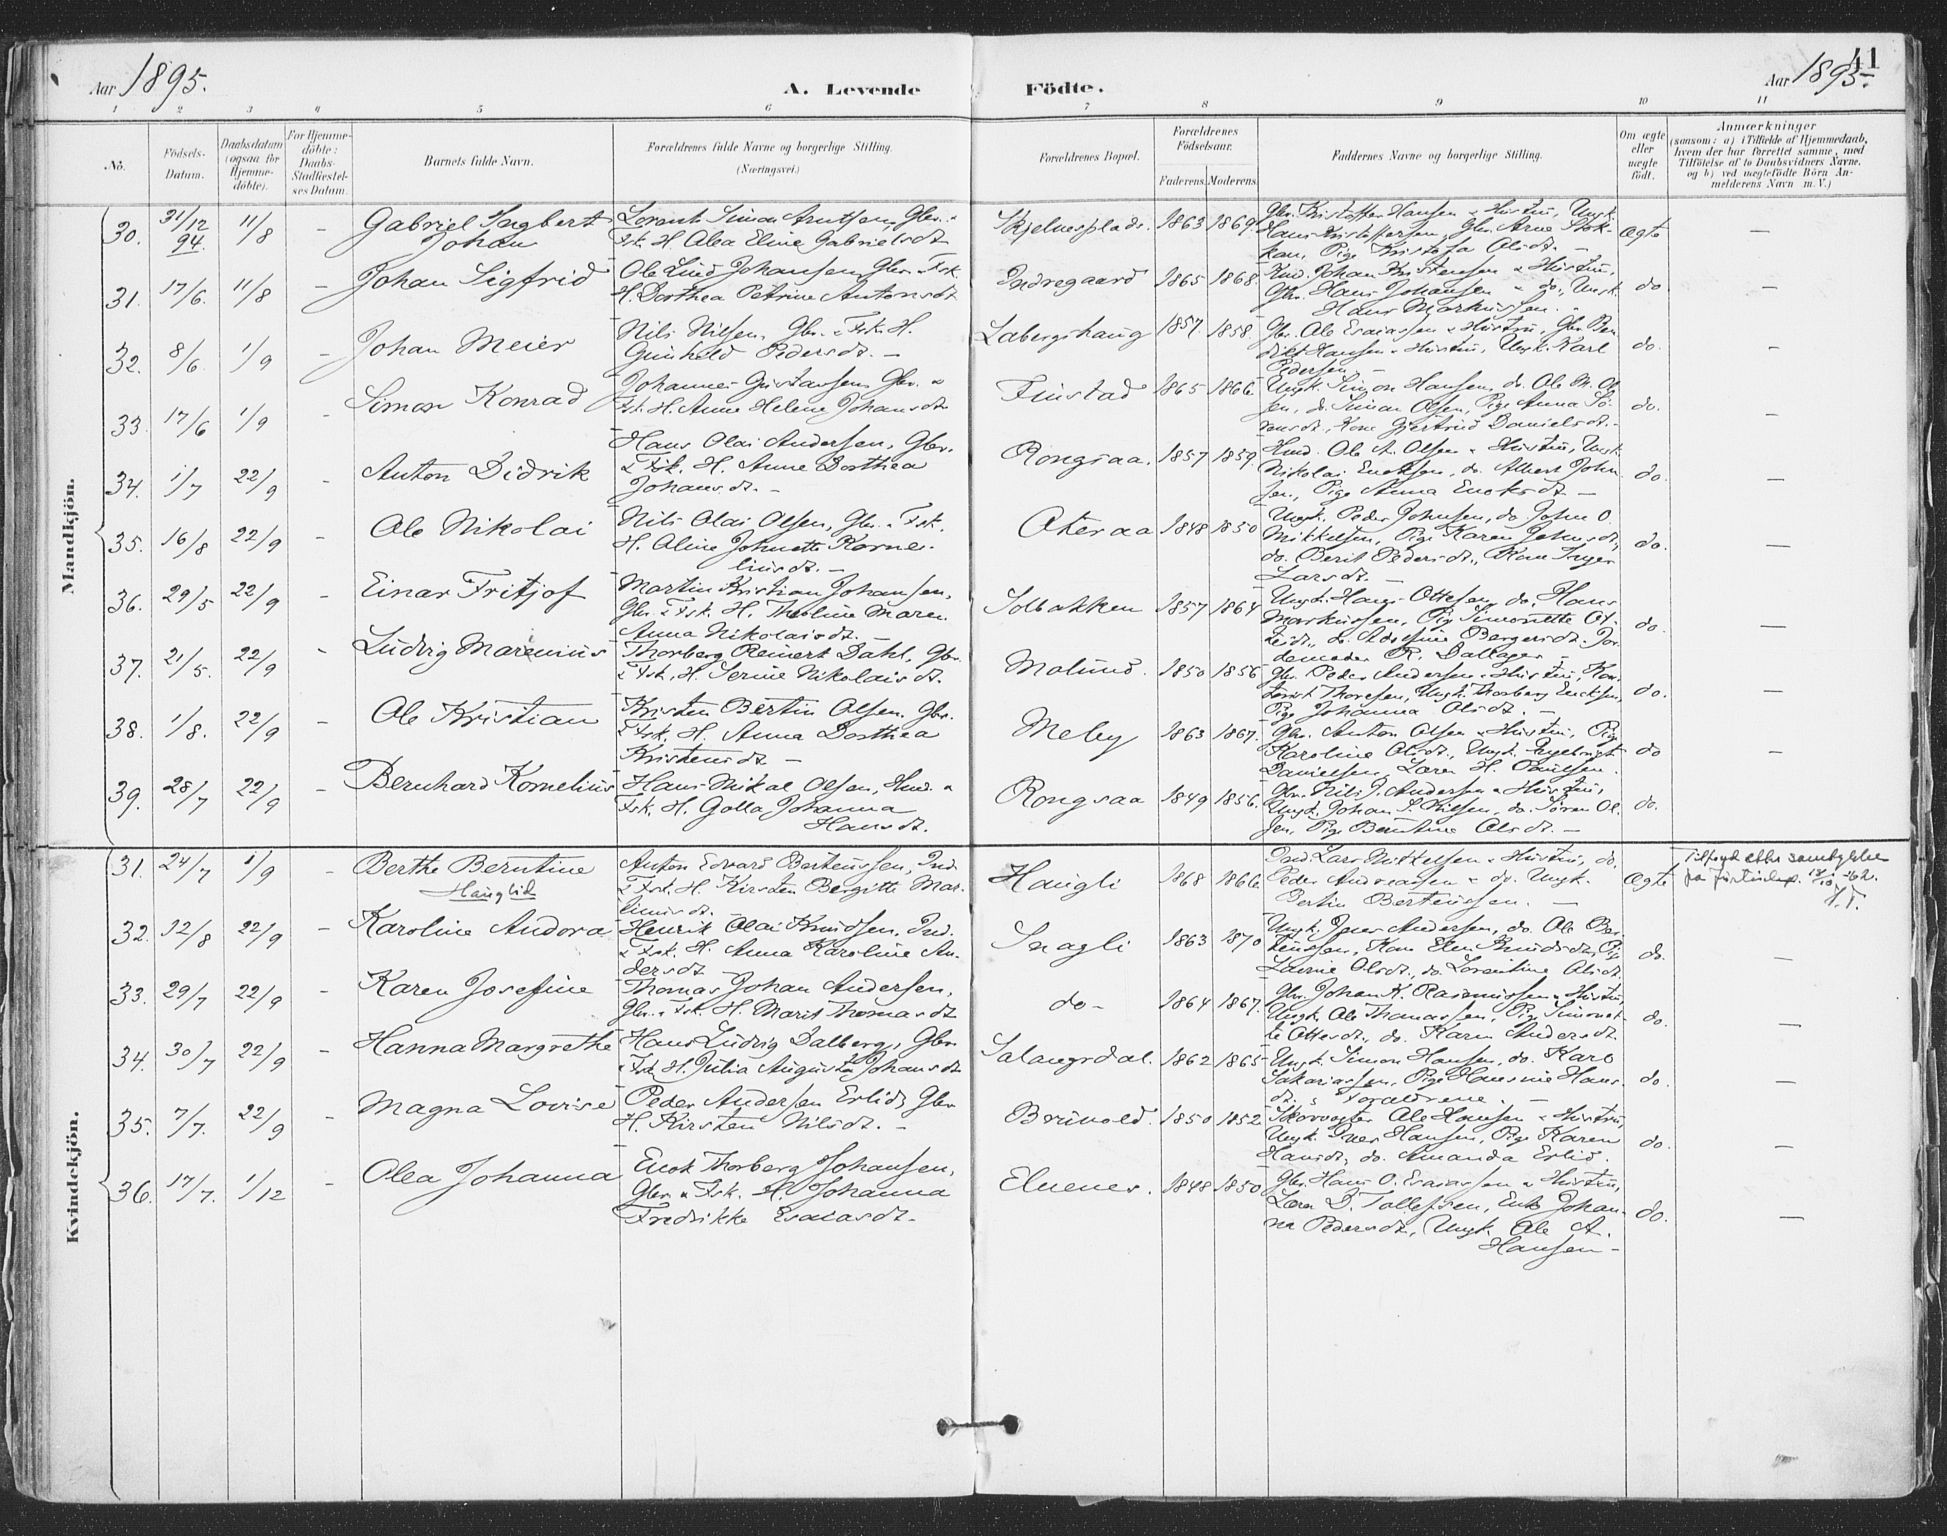 Aar 1895. A. Levende Födte. Aar 1895. 41
1 2 3 4 5 6 7 8 9 10 11
No. Födsels-Datum. Daabsdatum (ogsaa for Hjemmedöbte). For Hjemmedöbte: Daabs-Stadfæstelses Datum. Barnets fulde Navn. Forældrenes fulde Navne og borgerlige Stilling. (Næringsvei.) Forældrenes Bopæl. Forældrenes Födselsaar. Faderens. Moderens. Faddernes Navne og borgerlige Stilling. Om ægte eller uægte födt. Anmærkninger (saasom: a) i Tilfælde af Hjemmedaab, hvem der har forrettet samme, med Tilföielse af to Daabsvidners Navne, og b) ved uægtefödte Börn Anmelderens Navn m. V.)
Mandkjön.
30. 31/12 94. 11/8 - Gabriel Ingbert Johan
Lorents Simon Arntsen, Gbr. &
Fsk. H. Alea Eline Gabrielsdt.
Skjelnesplads. 1863 1869
Gbr. Kristoffer Hansen & Hustru, Ungk.
Hans Kristoffersen, Gbr. Arne Stok-
kan, Pige Kristofa Olsdt. -
Ægte -
31. 17/6. 11/8 - Johan Sigfrid
Ole Lind Johansen, Gbr. & Fsk.
H. Dorthea Petrine Antonsdt
Indregaard 1865 1868.
Kmd. Johan Kristensen & Hustru,
Gbr. Hans Johansen & do., Ungk.
Hans Markussen.
do -
32. 8/6. 1/9 - Johan Meier
Nils Nilsen, Gbr. & Fsk. H.
Gunhild Pedersdt. -
Labergshaug 1857 1858.
Gbr. Ole Esaiassen & Hustru, Gbr. Ben-
dikt Hansen & Hustru, Ungk. Karl
Pedersen. -
do. -
33. 17/6 1/9 - Simon Konrad
Johannes Gustavsen, Gbr. &
Fsk. H. Anne Helene Johansdt.
Finstad 1865 1866.
Ungk. Simon Hansen, do. Ole M. Ol-
sen, do. Simon Olsen, Pige Anna Sö-
rensdt., Kone Gjertrud Danielsdt. -
do. -
34. 1/7 22/9 - Anton Didrik
Hans Olai Andersen, Gbr.
& Fsk. H. Anne Dorthea
Johansdt. -
Rongsaa. 1857 1859.
Hmd. Ole A. Olsen & Hustru, Ungk.
Nikolai Enoksen, do. Albert John-
sen, Pige Anna Enoksdt. -
do. -
35. 16/8 22/9 - Ole Nikolai
Nils Olai Olsen, Gbr. & Fsk.
H. Aline Johnette Korne-
liusdt. -
Oteraa 1848 1850
Ungk. Peder Johnsen, do John O.
Mikkelsen, Pige Karen Johnsdt,
do. Berit Pedersdt., Kone Inger
Larsdt. -
do. -
36. 29/5 22/9 - Einar Fritjof
Martin Kristian Johansen,
Gbr. & Fsk. H. Theoline Maren
Anna Nikolaisdt. -
Solbakken 1857 1864
Ungk. Hans Ottesen, do. Hans
Markussen, Pige Simonette Ot-
tesdt., do. Adolfine Bergersdt. Jor-
demoder R. Dallager -
do. -
37. 21/5. 22/9 - Ludvig Marenius
Thorberg Reinert Dahl, Gbr.
& Fsk, H. Serine Nikolaisdt.
Molund. 1850 1856
Gbr. Peder Andersen & Hustru, Kon-
torist Thoresen, Ungk. Thorberg Ericksen,
Pige Johanna Olsdt. -
do. -
38. 1/8. 22/9 - Ole Kristian
Kristen Bertin Olsen. Gbr.
& Fsk. H. Anna Dorthea
Kristensdt -
Meby 1863 1867.
Gbr. Anton Olsen & Hustru, Pige
Karoline Olsdt., Ungk. Ingebrigt
Danielsen, Lærer H. Paulsen.
do -
39. 28/7 22/9 - Bernhard Kornelius
Hans Nikal Olsen, Hmd. &
Fsk. H. Golla Johanna
Hansdt.
Rongsaa 1849 1856.
Gbr. Nils J. Andersen & Hustru,
Ungk. Johan S. Nilsen, do. Sören Ol-
sen, Pige Berntine Olsdt. -
do.
Kvindekjön.
31. 24/7 1/9 - Berthe Berntine Hauglid
Anton Edvard Berteussen, Ind.
& Fsk. H. Kirsten Bergitte Mar-
tinusdt. -
Haugli 1868 1866.
Ind. Lars Mikkelsen & Hustru, do.
Peder Andreassen & do. Ungk.
Bertin Berteussen. -
Ægte
Tilföyd etter samtykke
fra Justisdep. 18/10-62.
32. 12/8 22/9 - Karoline Andora
Henrik Olai Knudsen, Ind.
& Fsk. H. Anna Karoline An-
dersdt
Snagli 1863 1870
Ungk. Jens Andersen, do. Ole Ber-
teussen, Kone Elen Knudsdt, Pige
Lavine Olsdt., do. Lorentine Olsdt.
do. -
33. 29/7 22/9 - Karen Josefine
Thomas Johan Andersen,
Gbr. & Fsk. H. Marit Thomasdt
do- 1864 1867.
Gbr. Johan K. Rasmussen & Hustru,
Ungk. Ole Thomassen, Pige Simonet-
te Ottesdt., do. Karen Andersdt.
do. -
34. 30/7 22/9 - Hanna Margrethe
Hans Ludvig Dalberg, Gbr.
& Fsk. H. Julia Augusta Johansdt
Salangsdal. 1862 1865
Ungk. Simon Hansen, do. Karl
Sakariassen, Pige Hansine Hans-
dt. & Forældrene. -
do. -
35. 7/7. 22/9 - Magna Lovise
Peder Andersen Erlid, Gbr.
H. Kirsten Nilsdt. -
Brunvold. 1850 1852
Skovvogter Ole Hansen & Hustru,
Ungk. Iver Hansen, Pige Karen
Hansdt, do. Amanda Erlid.
do. -
36. 17/7. 1/12 - Olea Johanna
Enok Thorberg Johansen,
Gbr. & Fsk. H. Johanna
Fredrikke Esaiasdt. -
Elvenes. 1848 1850
Gbr. Hans O. Esaiassen & Hustru,
Lærer D. Tollefsen, Enke Johan-
na Pedersdt., Ungk. Ole A.
Hansen -
do. -